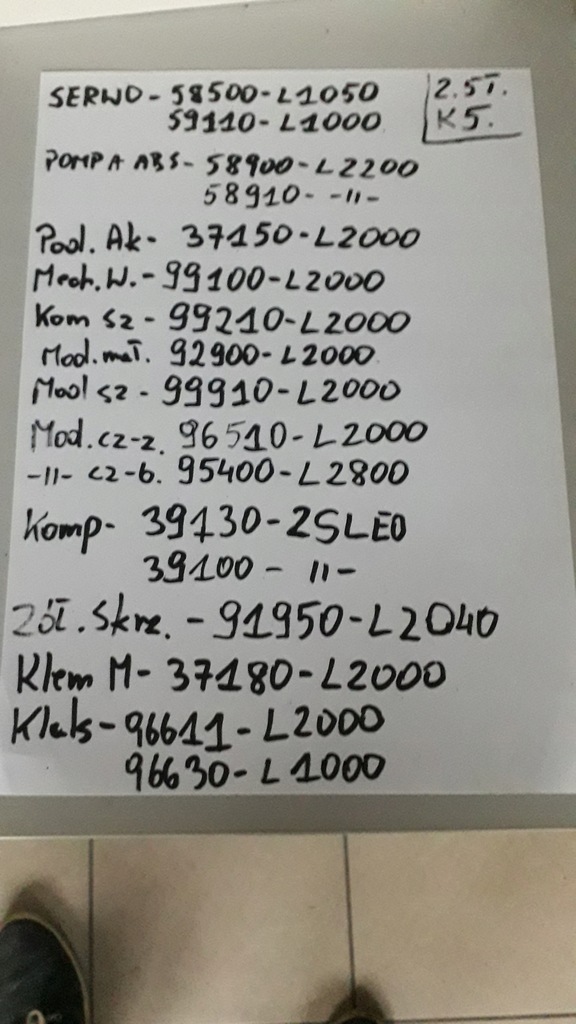 SERWO - 58500-L1050
59110-L1000
2.5T.
K5.
POMPA ABS - 58900-L2200
58910- -11-
Pod. Ak - 37150-L2000
Mech. W. - 99100-L2000
Kom sz - 99210-L2000
Mod. maT. 92900-L2000
Mod sz - 99910-L2000
Mod. cz-z. 96510-L2000
-11- cz-b. 95400-L2800
Komp - 39130-2SLE0
39100 - 11 -
Żół. Skrz. - 91950-L2040
Klem M - 37180-L2000
Klaks - 96611-L2000
96630-L1000